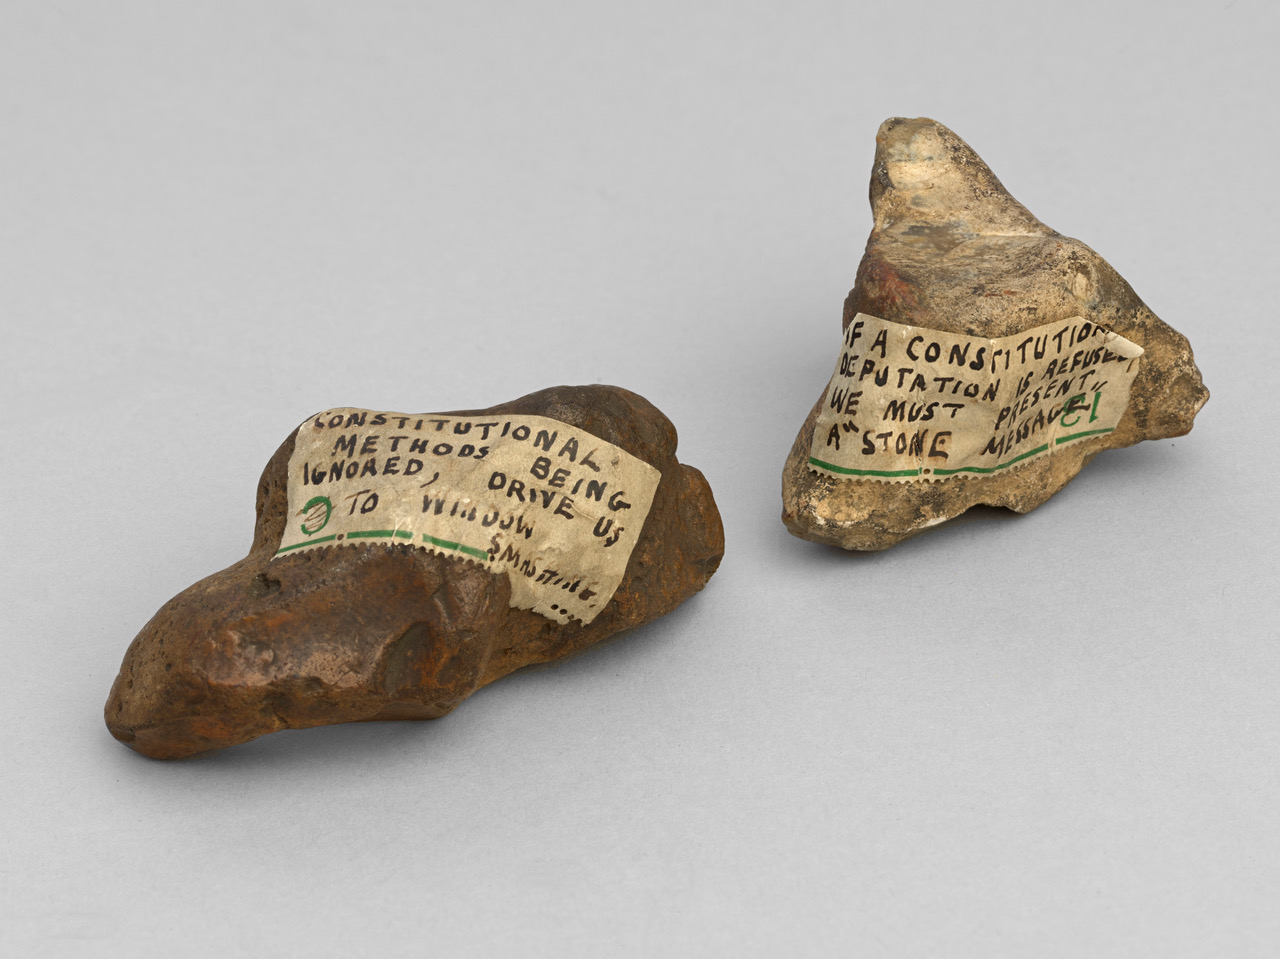 CONSTITUTIONAL
METHODS BEING
IGNORED, DRIVE US
TO WINDOW
SMASHING.
...
IF A CONSTITUTION
DEPUTATION IS REFUSED
WE MUST PRESENT
A "STONE MESSAGE"
13